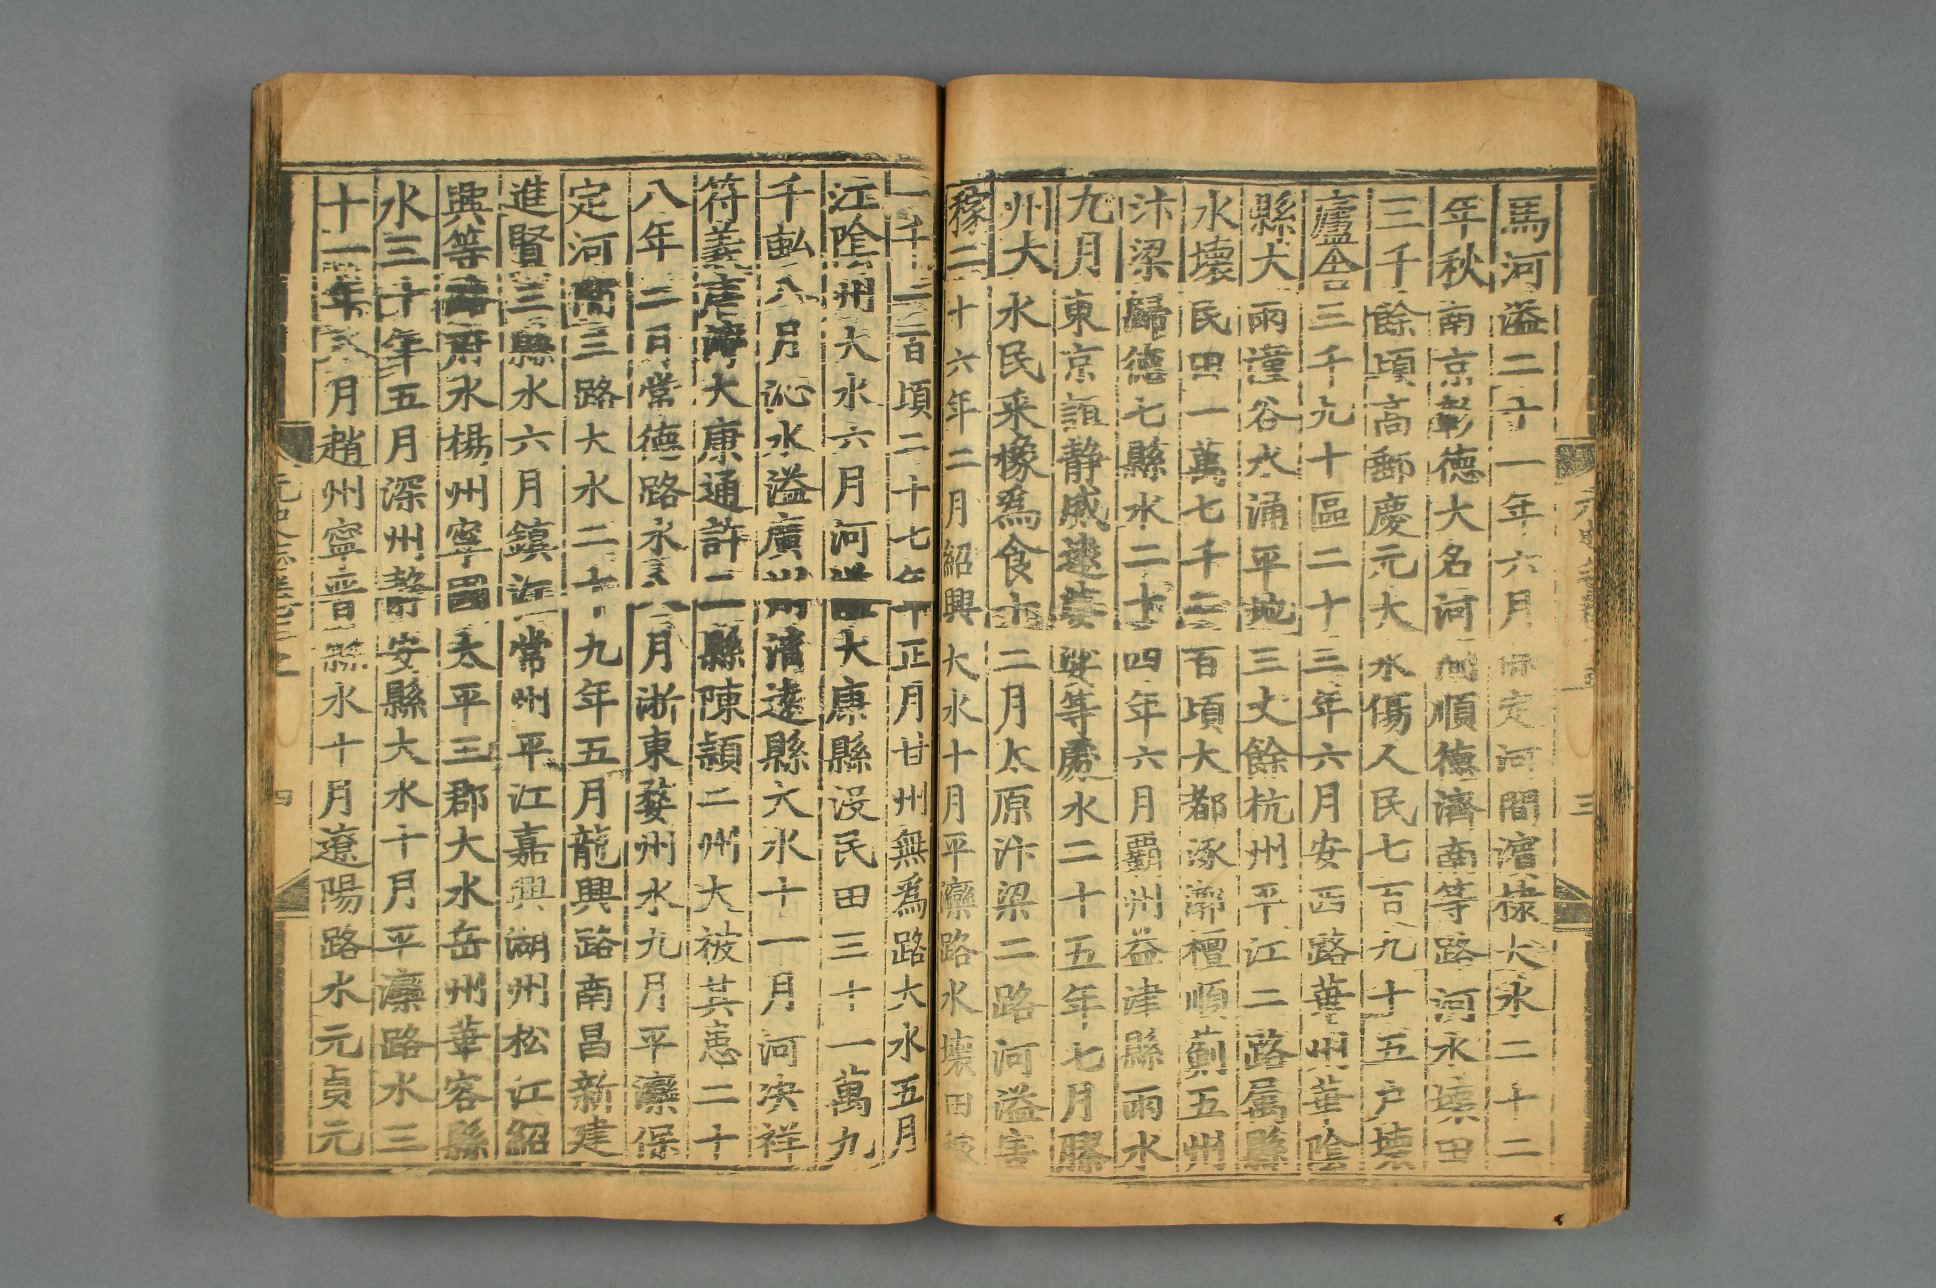 馬河溢二十一年六月保定河間濱棣大水二十二
年秋南京彰德大名河間順德濟南等路河水壞田
三千餘頃高郵慶元大水傷人民七百九十五户壞
廬舍三千九十區二十三年六月安西路華州華陰
縣大雨潼谷水涌平地三丈餘杭州平江二路属縣
水壞民田一萬七千二百頃大都涿漷檀順薊五州
汴梁歸德七縣水二十四年六月霸州益津縣雨水
九月東京誼静威遠婆娑等處水二十五年七月膠
州大水民采橡爲食十二月太原汴梁二路河溢害
稼二十六年二月紹興大水十月平灤路水壞田稼
一千一百頃二十七年正月甘州無爲路大水五月
江陰州大水六月河溢大康縣没民田三十一萬九
千畝八月沁水溢廣州清遠縣大水十一月河决祥
符義唐灣大康通許二縣陳潁二州大被其患二十
八年二月常德路水八月浙東婺州水九月平灤保
定河間三路大水二十九年五月龍興路南昌新建
進賢三縣水六月鎮江常州平江嘉興湖州松江紹
興等路府水揚州寧國太平三郡大水岳州華容縣
水三十年五月深州静安縣大水十月平灤路水三
十一年八月趙州寧晋縣水十月遼陽路水元貞元
元史志卷
三
四